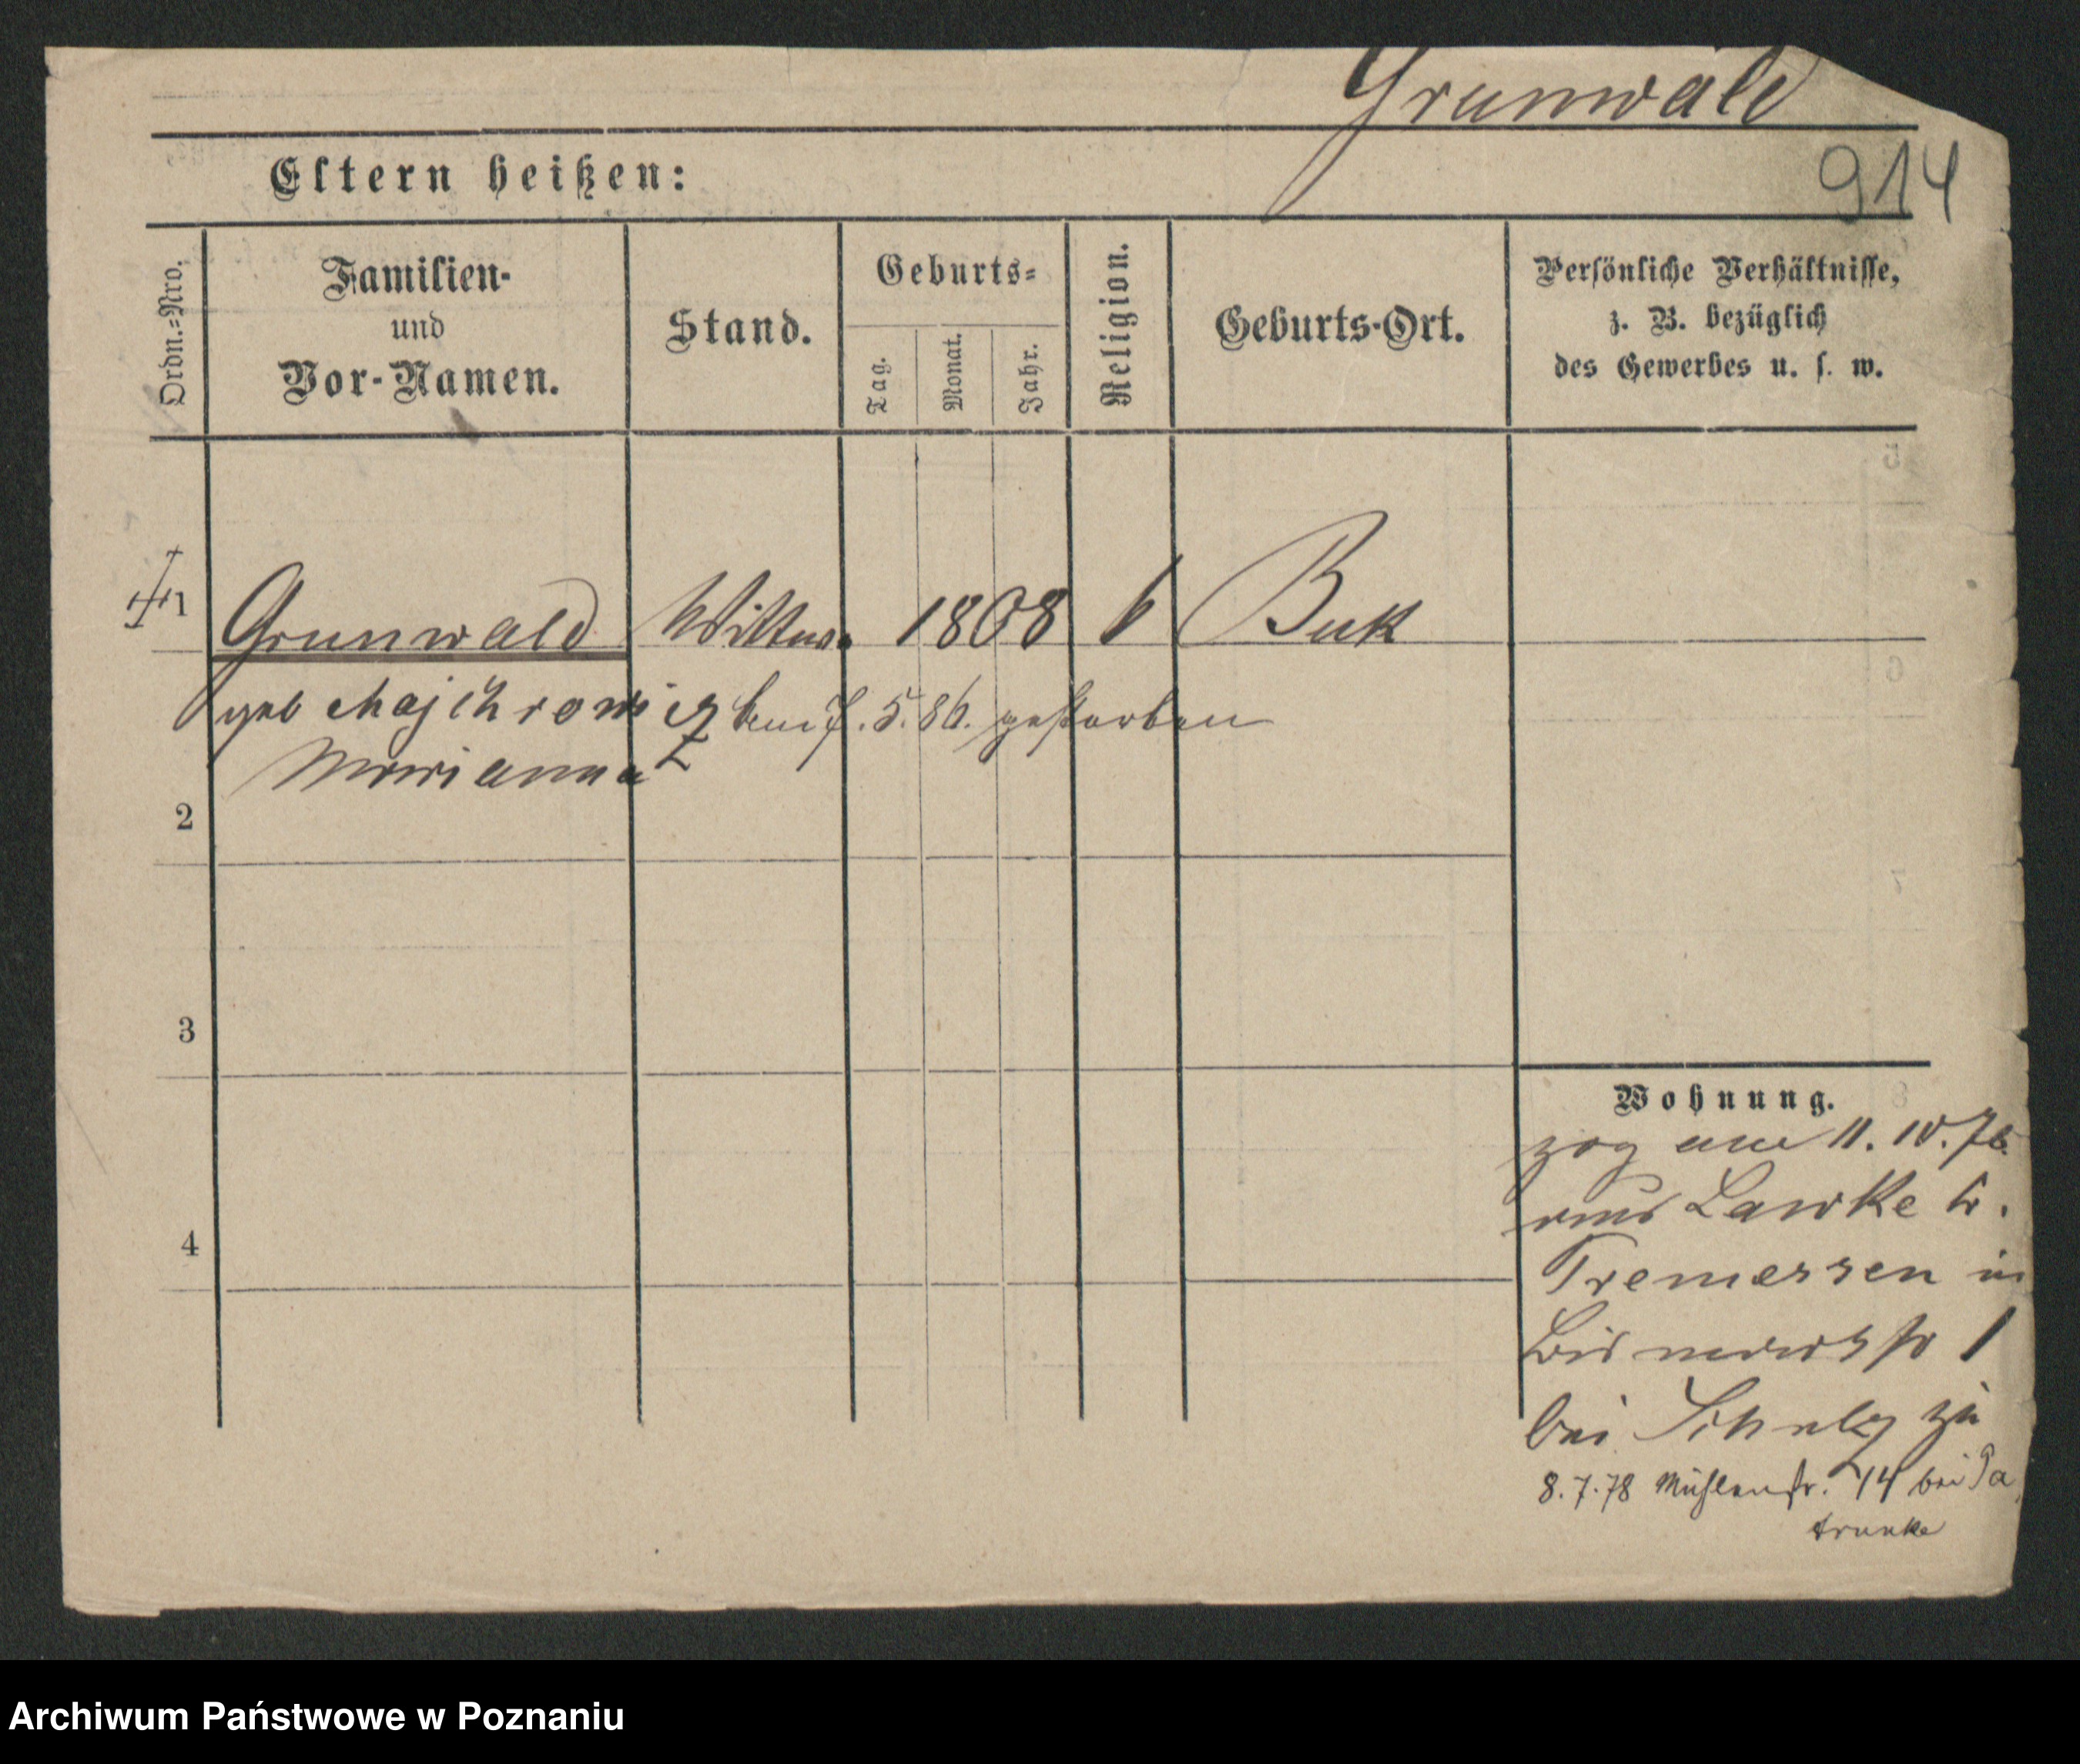 Grunwald
914
Eltern heißen:
Ordn.-Nro.
Familien-
und
Vor-Namen.
Stand.
Geburts-
Tag.
Monat.
Jahr.
Religion.
Geburts-Ort.
Persönliche Verhältnisse,
z. B. bezüglich
des Gewerbes u. s. w.
1 Grunwald Wittwe 1808 Buk
geb Majchrowicz den 7. 5. 86. gestorben
Marianna
2
3
4
Wohnung.
zog am 11. 10. 76
aus Lawke b.
Tremessen in
1
bei Schulz zu
8. 7. 78 Mühlenstr. 14 bei Pa
trunke
Archiwum Państwowe w Poznaniu